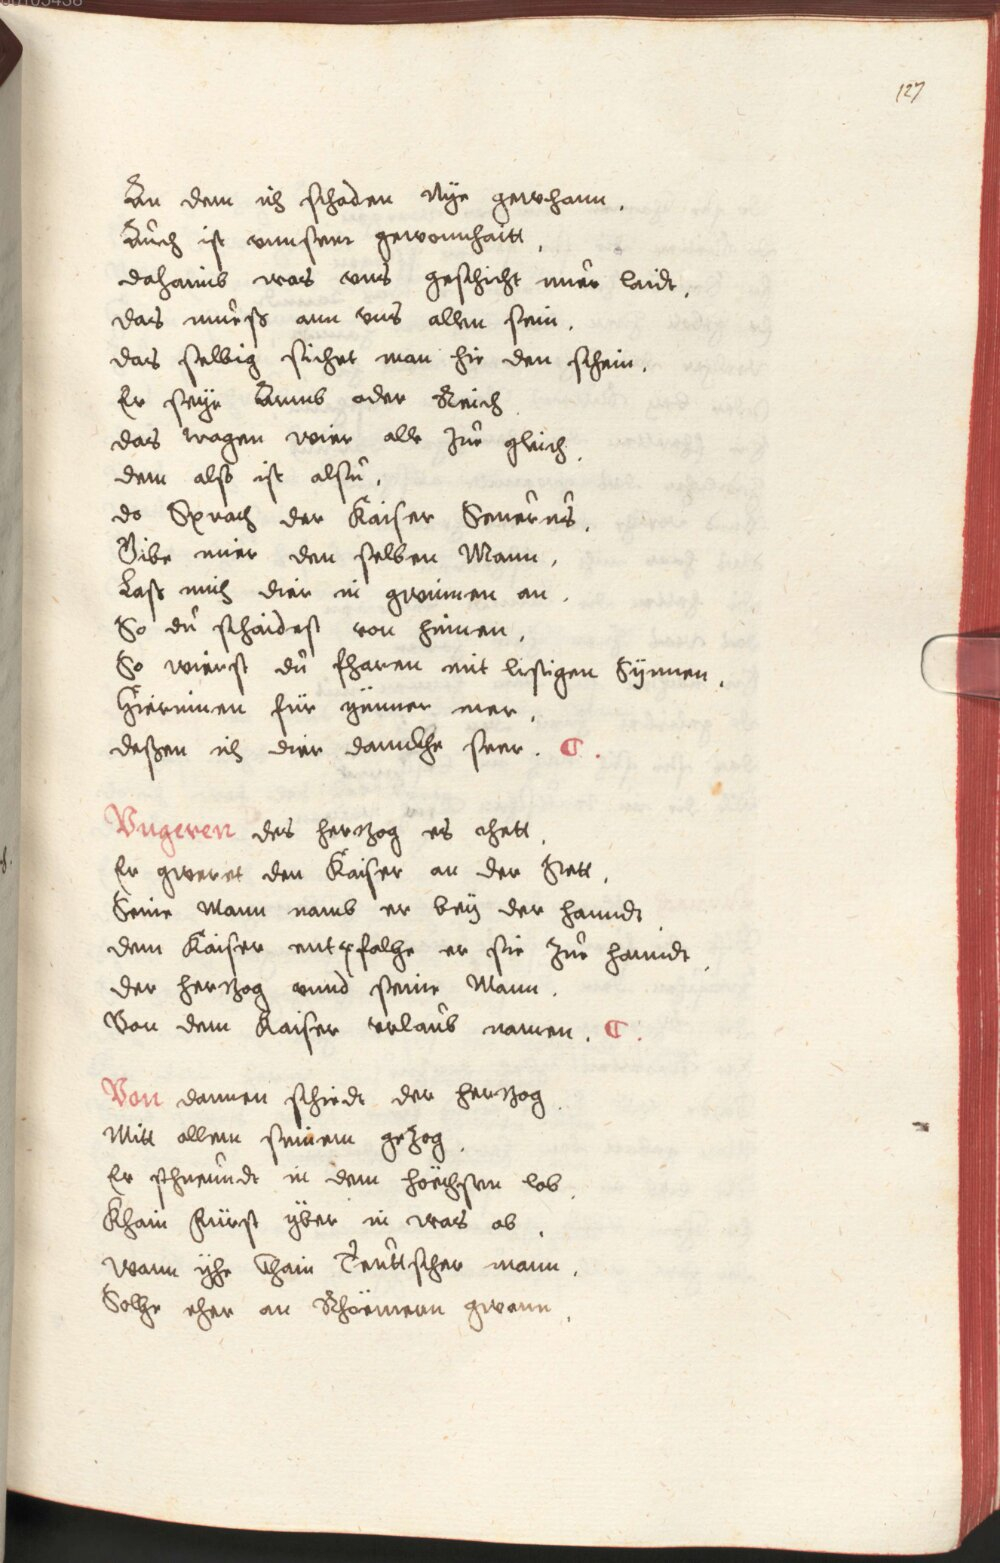 127
An dem ich schaden Nÿe gewhann.
Auch ist vnnserr gewonnhaitt,
dahaimb was vns geschicht mer laidt,
das muess ann vns allen sein,
das selbig sichet man hie den schein.
Er seÿe Armb oder Reich
das tragen wier alle zue gleich.
dem also ist alsu,
do Sprach der Kaiser Seuerus,
Gibe mier den selben Mann,
Lass mich dier in gwinnen an.
So du schaidest von hinnen,
So wierst du fharen mit listigen Sÿnnen,
Hierinnen für ÿmmer mer,
deßen ich dier dannckhe seer. C.
Vngeren des hertzog es thett,
Er gweret den Kaiser an der Stett,
Seine Mann namb er beÿ der hanndt
dem Kaiser entpfalhe er sie zue hanndt,
der hertzog vnnd seine Mann,
Von dem Kaiser vrlaub namen. C.
Von dannen schiedt der hertzog
Mitt allem seinem gezog,
Er schneundt in dem höechsten lob
Khain Fürst ÿber in was ob,
wann ÿhe Khain Teutscher mann,
Solhe eher an Rhöemern gwann,